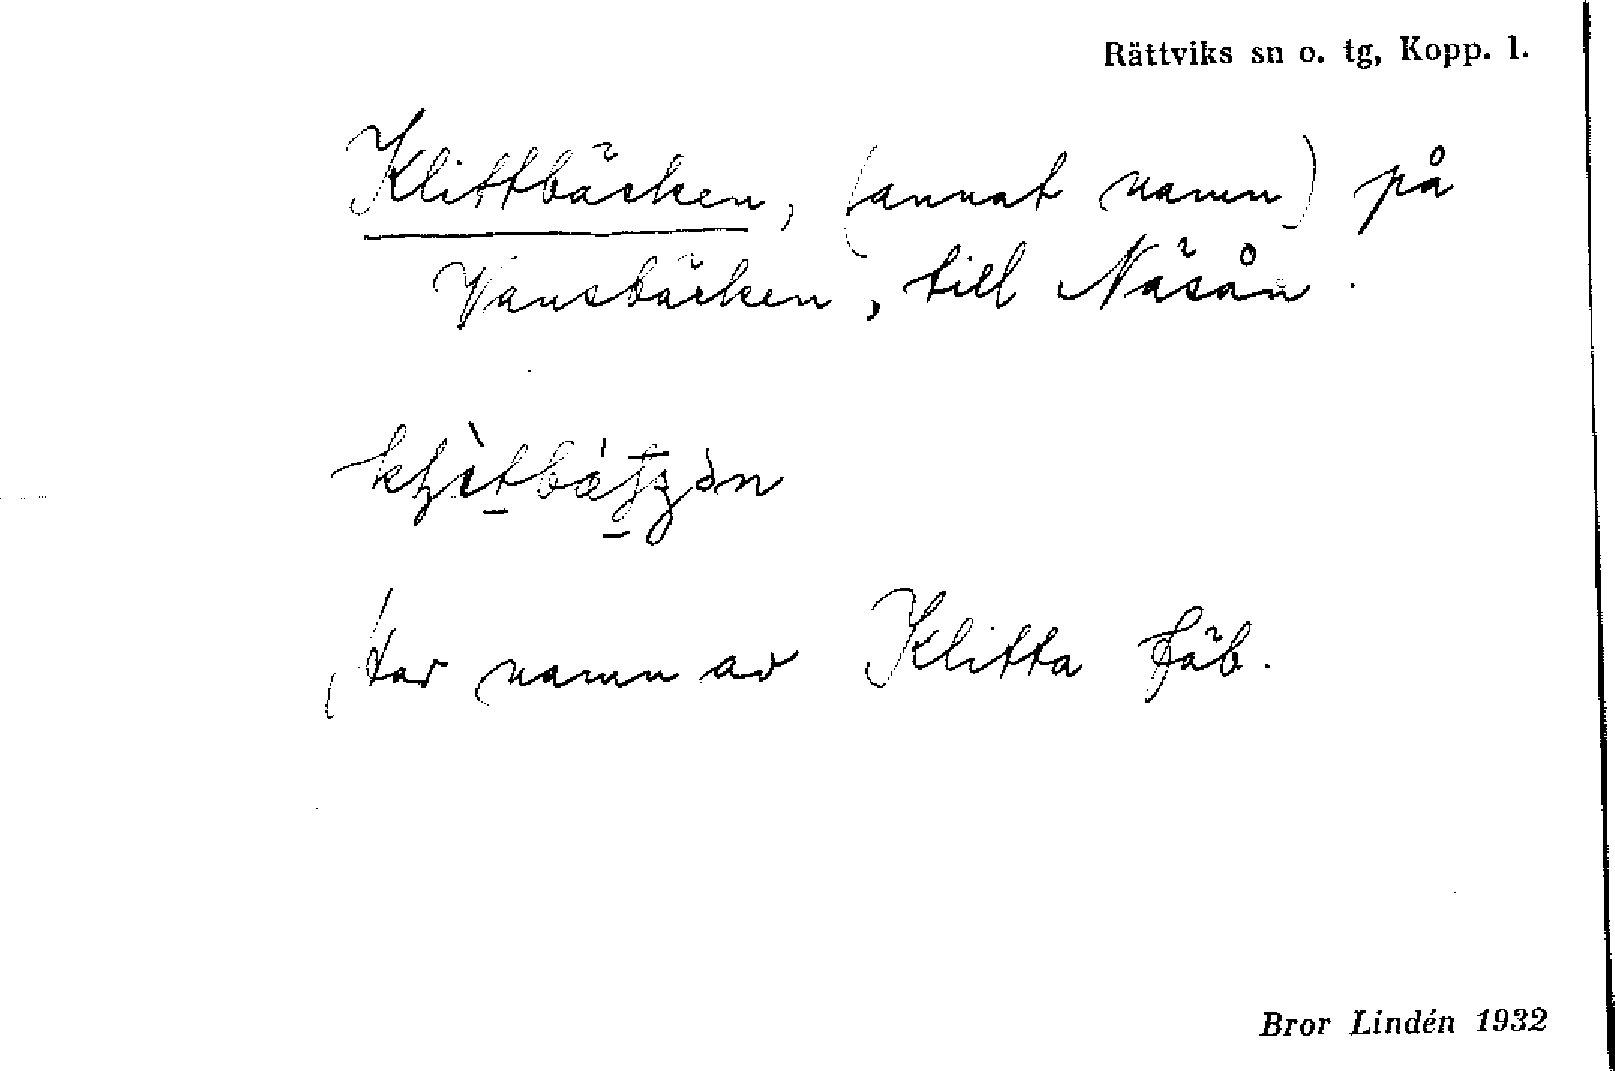 Rättviks sn o. tg, Kopp. l.
Klittbäcken, (annat namn) på
Vansbäcken, till Näsån.
(tar namn av Klitta fäb.
Bror Lindén 1932